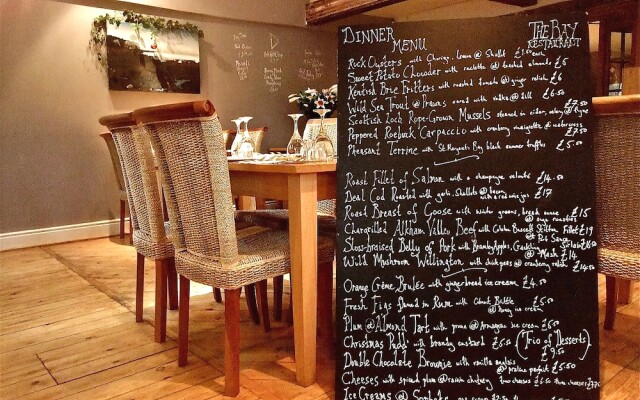 DINNER
MENU
THE BAY
RESTAURANT
Rock Oysters with Chorizo, Lemon @ Shallot
Sweet Potato Chowder with @ toasted almonds £5
Kentish Brie Fritters with roasted tomato @ ginger relish £6
Wild Sea Trout @ Prawns cured with vodka @ dill £6.50
Scottish Loch Rope-Grown Mussels steamed in cider, celery @ £7.50
Peppered Roebuck Carpaccio with cranberry vinaigrette @ watercress £7.50
Pheasant Terrine with St Margaret's Bay black summer truffles £5.50
Roast Fillet of Salmon with a champagne velouté £14.50
Deal Cod Roasted with garlic, Shallots @ bacon with a red wine jus £17
Roast Breast of Goose with winter greens, £15
@ roasties
Chargrilled Alkham Valley Beef with Stilton Fillet £19
Slow-braised Belly of Pork with Bramley Apples, Crackling
@ Mash £14
Wild Mushroom Wellington with chick peas @ cranberry relish £14.50
Orange Crème Brulée with gingerbread ice cream £4.50
Fresh Figs Flamed in Rum with
@ Honey ice cream £5.50
Plum @ Almond Tart with prune @ Armagnac ice cream £5.50
Christmas Pudd' with brandy custard £5.50 (Trio of Desserts)
£9.50
Double Chocolate Brownie with vanilla anglais
@ praline parfait £5.50
Cheeses with spiced plum @ raisin chutney two cheeses £6.50 three cheeses £7.75
Ice Creams @ Sorbets